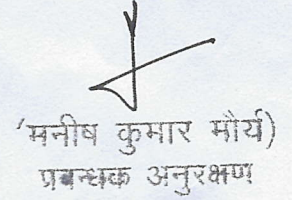 ‘मनीष कुमार मौर्य)
प्रबन्धक अनुरक्षण